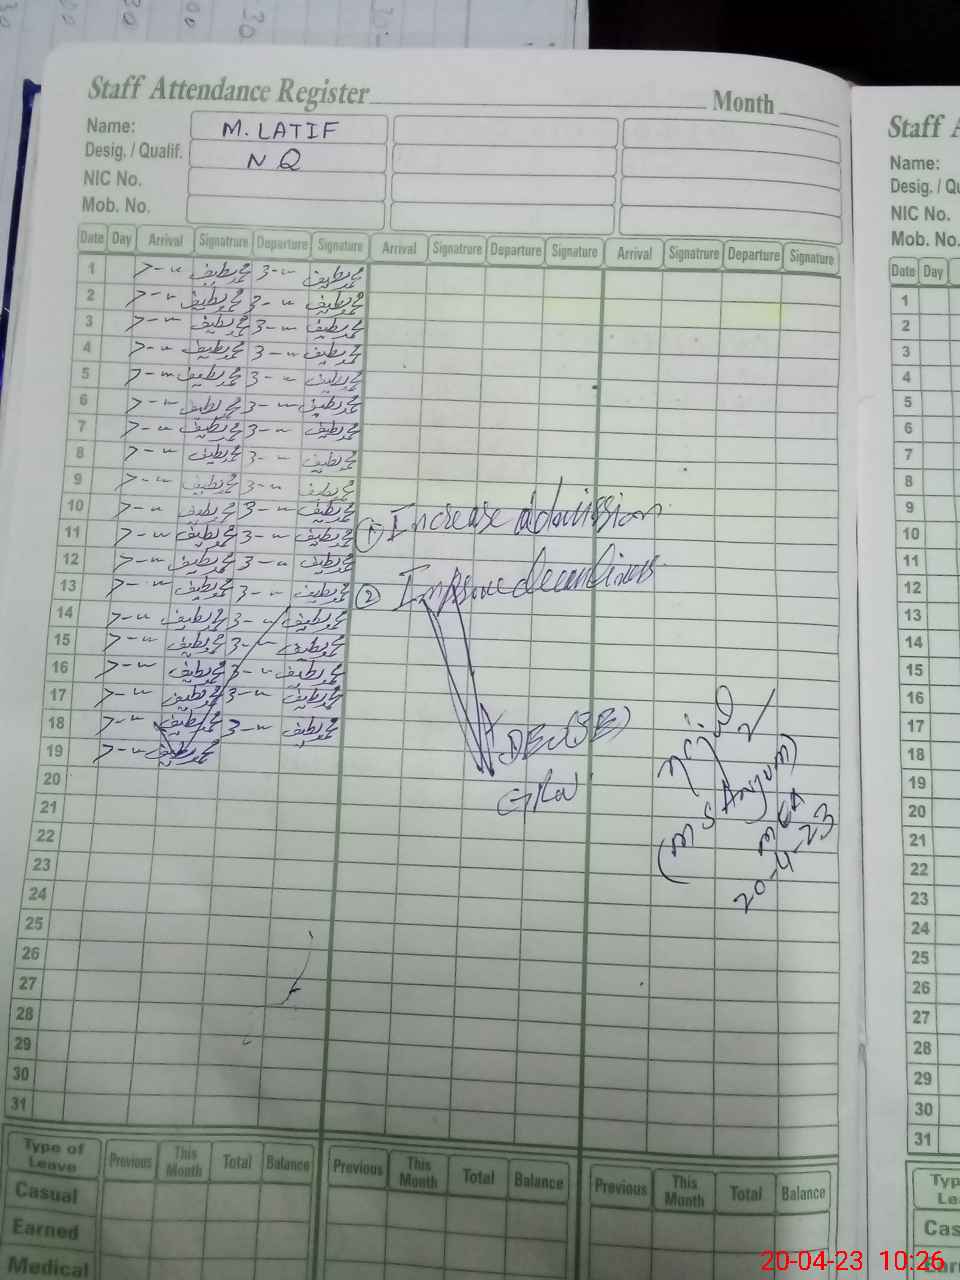 Staff Attendance Register Month
Name: M. LATIF
Desig. / Qualif. N Q
NIC No.
Mob. No.
Date Day Arrival Signatrure Departure Signature Arrival Signatrure Departure Signature Arrival Signatrure Departure Signature
1 محمد لطیف 3 محمد لطیف
2 محمد لطیف 3 محمد لطیف
3 محمد لطیف 3 محمد لطیف
4 محمد لطیف 3 محمد لطیف
5 محمد لطیف 3 محمد لطیف
6 محمد لطیف 3 محمد لطیف
7 محمد لطیف 3 محمد لطیف
8 محمد لطیف 3 محمد لطیف
9 محمد لطیف 3 محمد لطیف
10 محمد لطیف 3 محمد لطیف
11 محمد لطیف 3 محمد لطیف
12 محمد لطیف 3 محمد لطیف
13 محمد لطیف 3 محمد لطیف
14 محمد لطیف 3 محمد لطیف
15 محمد لطیف 3 محمد لطیف
16 محمد لطیف 3 محمد لطیف
17 محمد لطیف 3 محمد لطیف
18 محمد لطیف 3 محمد لطیف
19 محمد لطیف
20
21
22
23
24
25
26
27
28
29
30
31
① Increase admission
② Improve cleanliness
(M S Anjum)
MEA
20-4-23
Type of Leave Previous This Month Total Balance Previous This Month Total Balance Previous This Month Total Balance
Casual
Earned
Medical
Staff
Name:
NIC No.
Mob. No.
Date Day
1
2
3
4
5
6
7
8
9
10
11
12
13
14
15
16
17
18
19
20
21
22
23
24
25
26
27
28
29
30
31
20-04-23 10:26